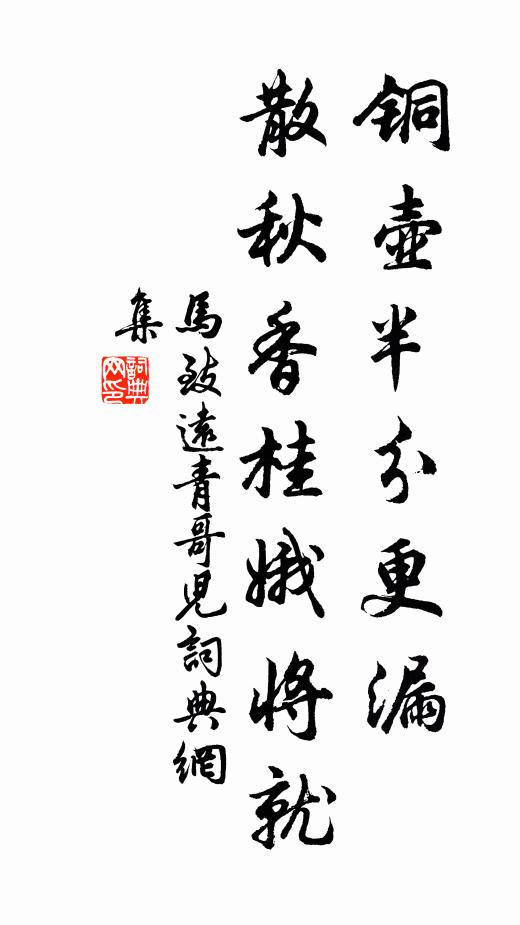 铜壶半分更漏
散秋香桂娥将就
馬致遠青哥児詞典網
集
詞典
网印